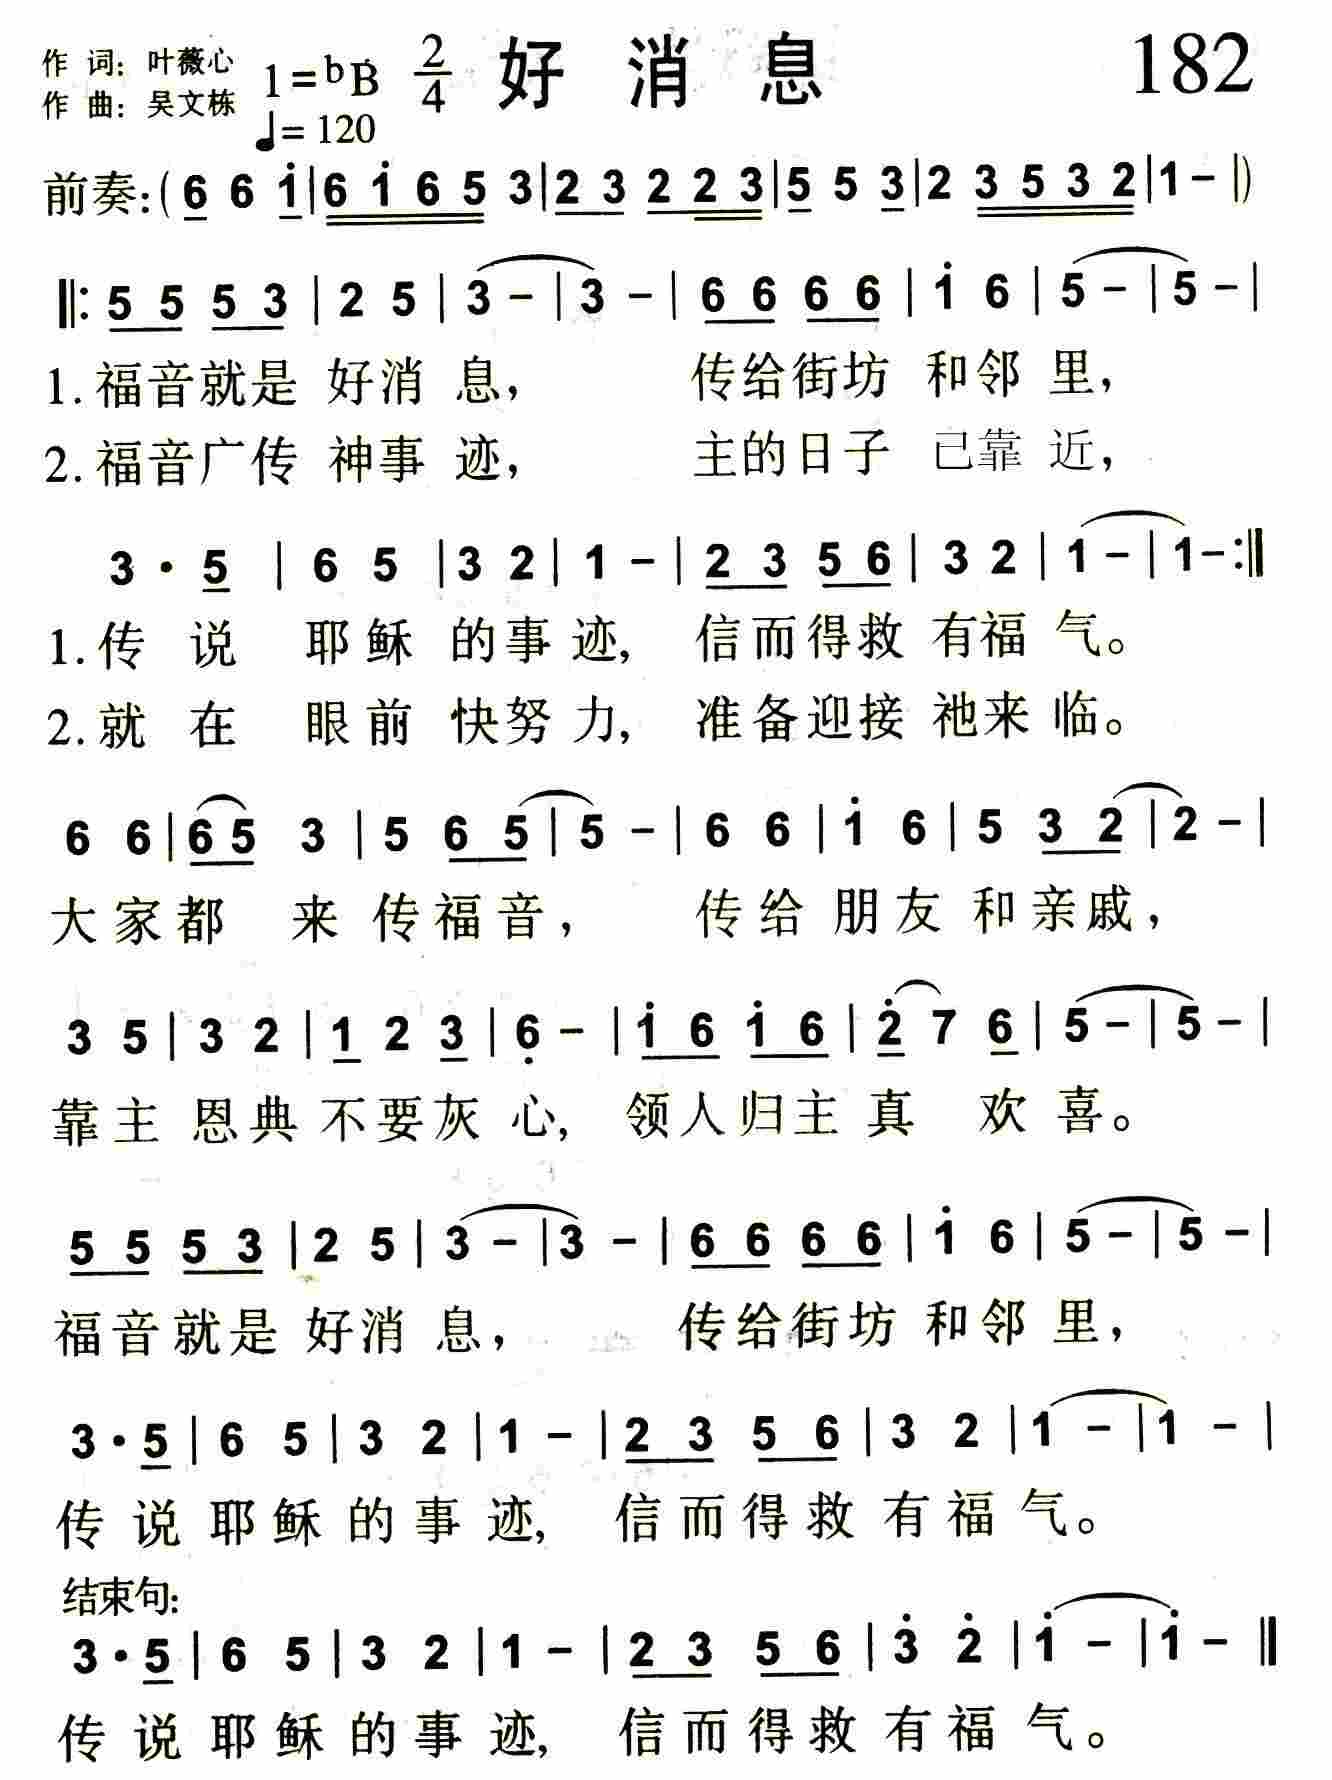 作 词：叶薇心 1=ᵇB 2/4 好 消 息 182
作 曲：吴文栋 ♩=120
前奏:(6 6 i|6 i 6 5 3|2 3 2 2 3|5 5 3|2 3 5 3 2|1 - |)
‖: 5 5 5 3 | 2 5 | 3 - | 3 - | 6 6 6 6 | i 6 | 5 - | 5 - |
1.福音就是 好消 息， 传给街坊 和邻 里，
2.福音广传 神事 迹， 主的日子 已靠 近，
3 · 5 | 6 5 | 3 2 | 1 - | 2 3 5 6 | 3 2 | 1 - | 1 - :‖
1.传 说 耶稣 的事 迹， 信而得救 有福 气。
2.就 在 眼前 快努 力， 准备迎接 祂来 临。
6 6 | 6 5 3 | 5 6 5 | 5 - | 6 6 | i 6 | 5 3 2 | 2 - |
大家都 来 传福音， 传给 朋友 和亲戚，
3 5 | 3 2 | 1 2 3 | 6̣ - | i 6 i 6 | 2̇ 7 6 | 5 - | 5 - |
靠主 恩典 不要灰 心， 领人归主 真 欢 喜。
5 5 5 3 | 2 5 | 3 - | 3 - | 6 6 6 6 | i 6 | 5 - | 5 - |
福音就是 好消 息， 传给街坊 和邻 里，
3 · 5 | 6 5 | 3 2 | 1 - | 2 3 5 6 | 3 2 | 1 - | 1 - |
传 说 耶稣 的事 迹， 信而得救 有福 气。
结束句:
3 · 5 | 6 5 | 3 2 | 1 - | 2 3 5 6 | 3̇ 2̇ | i - | i - ‖
传 说 耶稣 的事 迹， 信而得救 有福 气。